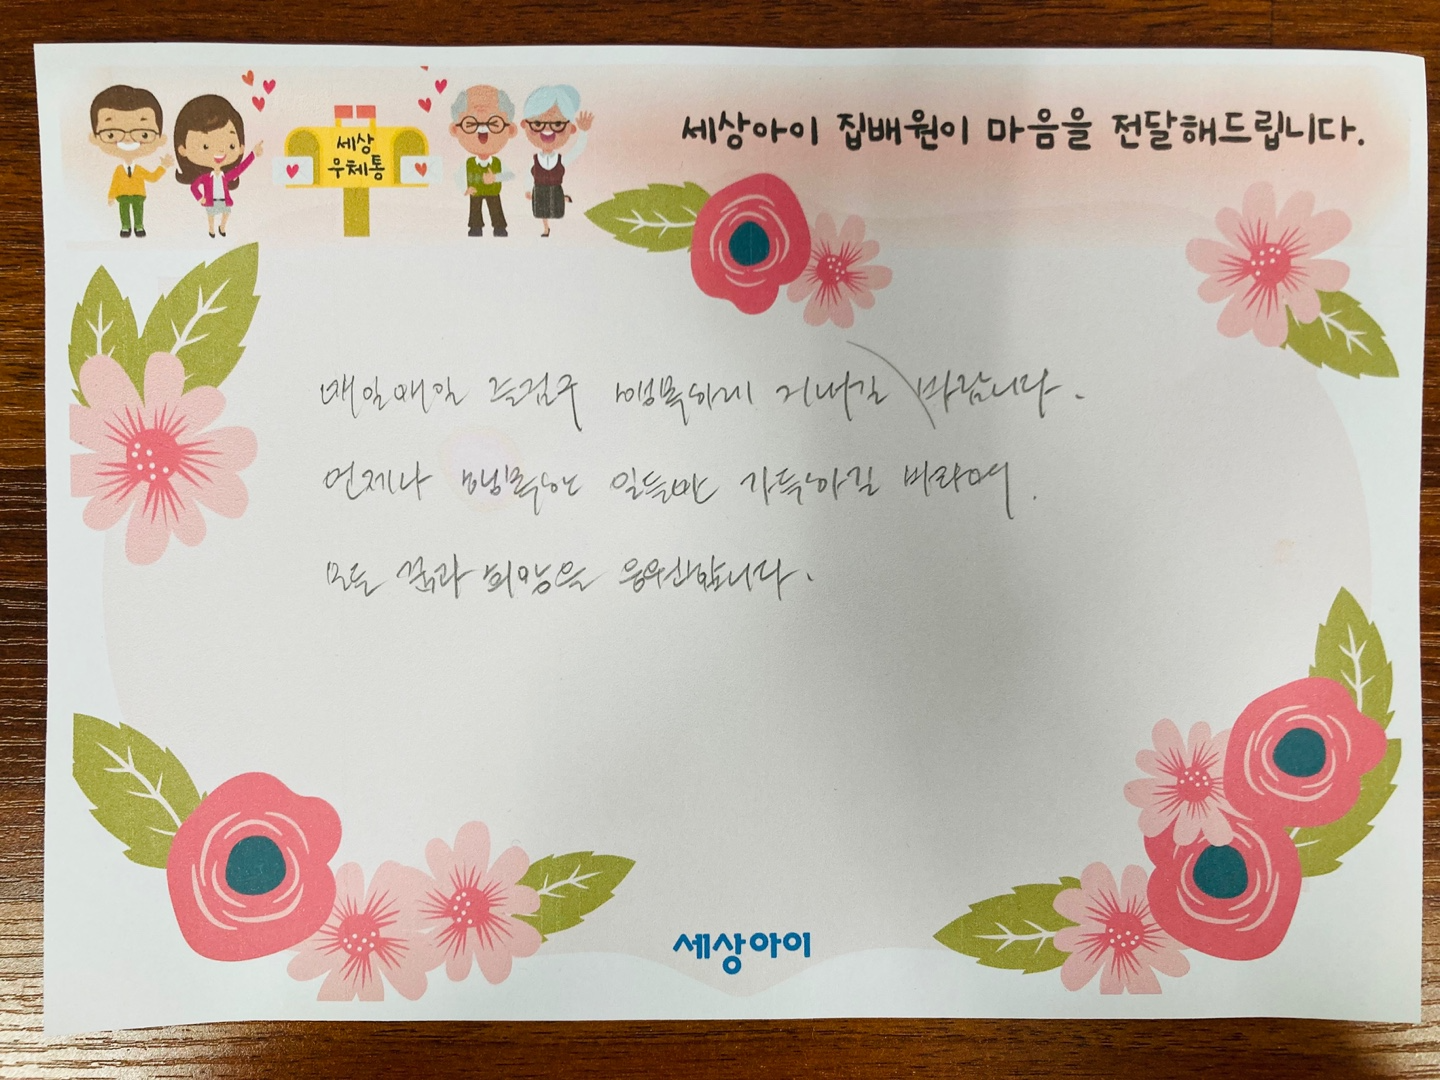 세상아이 집배원이 마음을 전달해드립니다.
세상
우체통
매일매일 즐겁구 행복하게 지내길 바랍니다.
언제나 행복한 일들만 가득하길 바라며.
모든 꿈과 희망을 응원합니다.
세상아이